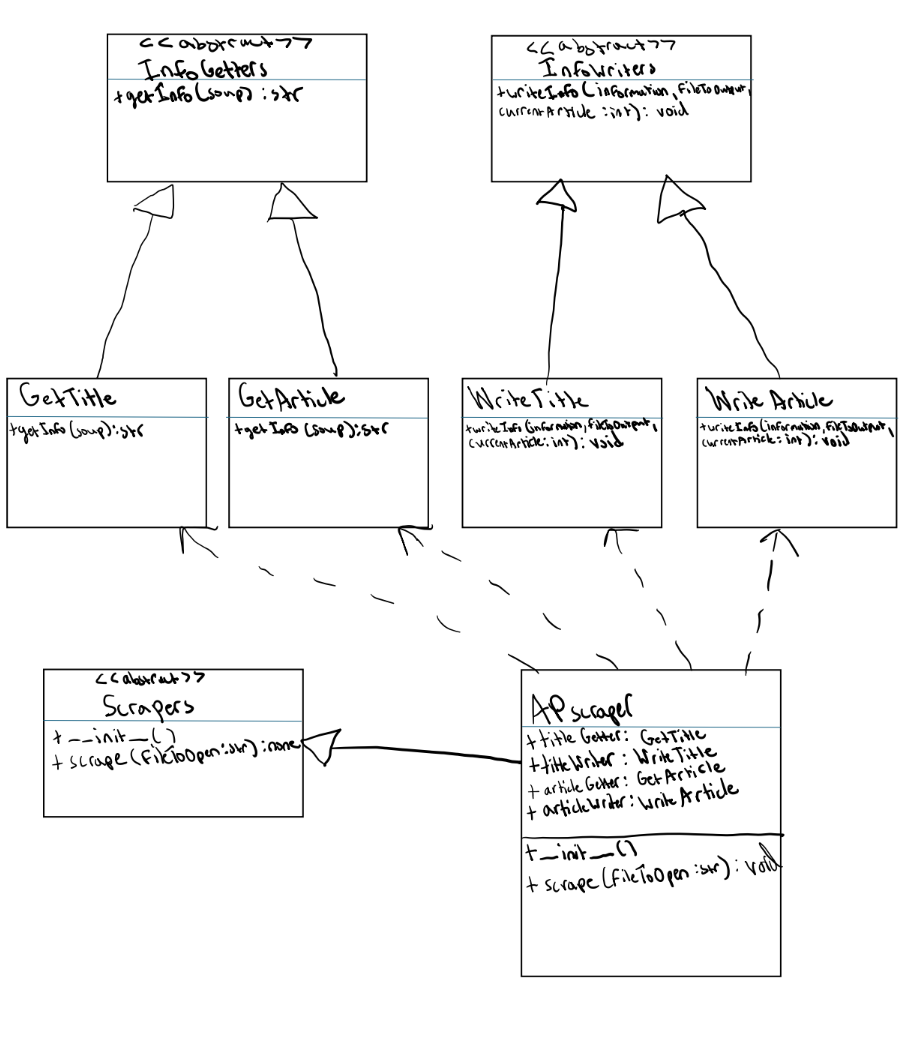 <<abstract>>
InfoGetters
+getInfo(soup):str
<<abstract>>
InfoWriters
+writeInfo(information, FileToOutput,
currentArticle:int): void
GetTitle
+getInfo(soup):str
GetArticle
+getInfo(soup):str
WriteTitle
+writeInfo(information, fileToOutput,
currentArticle:int): void
WriteArticle
+writeInfo(information, fileToOutput,
currentArticle:int): void
<<abstract>>
Scrapers
+__init__()
+ scrape(FileToOpen:str):none
APscraper
+titleGetter: GetTitle
+titleWriter: WriteTitle
+ articleGetter: GetArticle
+ articleWriter: WriteArticle
+__init__()
+ scrape(fileToOpen:str): void